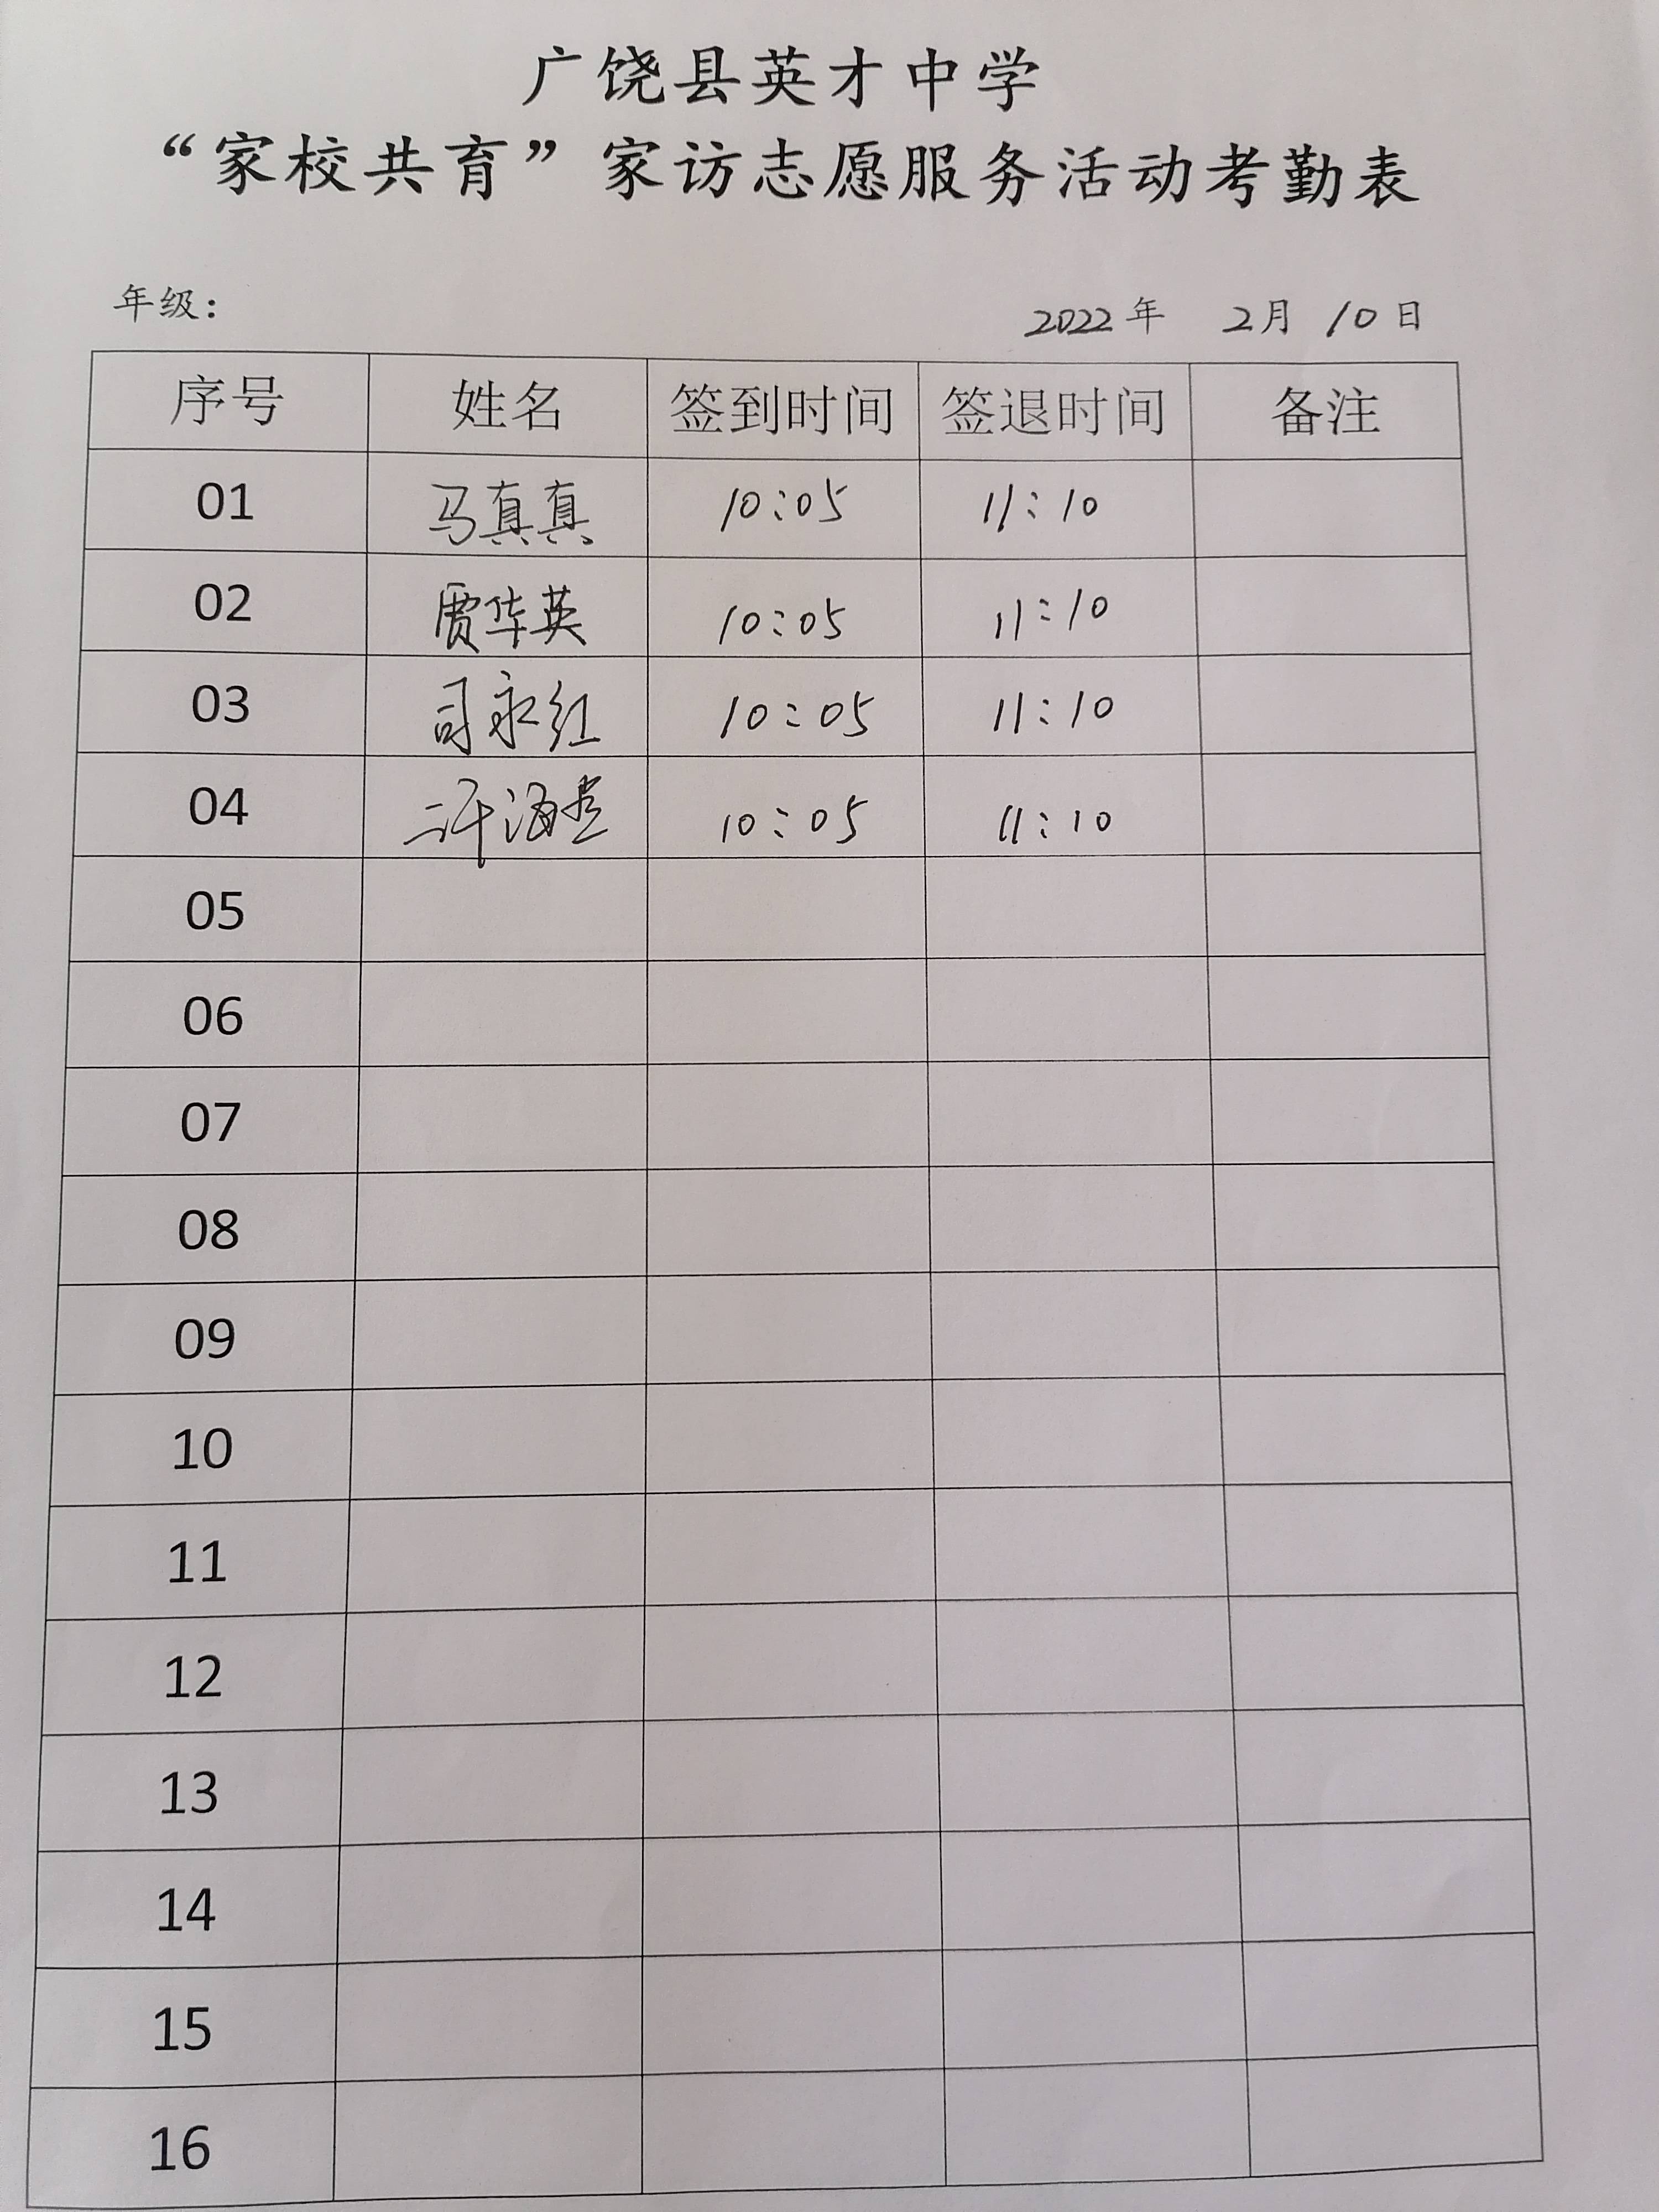 广饶县英才中学
“家校共育”家访志愿服务活动考勤表
年级: 2022年 2月 10日
序号 姓名 签到时间 签退时间 备注
01 马真真 10:05 11:10
02 贾华英 10:05 11:10
03 司永红 10:05 11:10
04 10:05 11:10
05
06
07
08
09
10
11
12
13
14
15
16